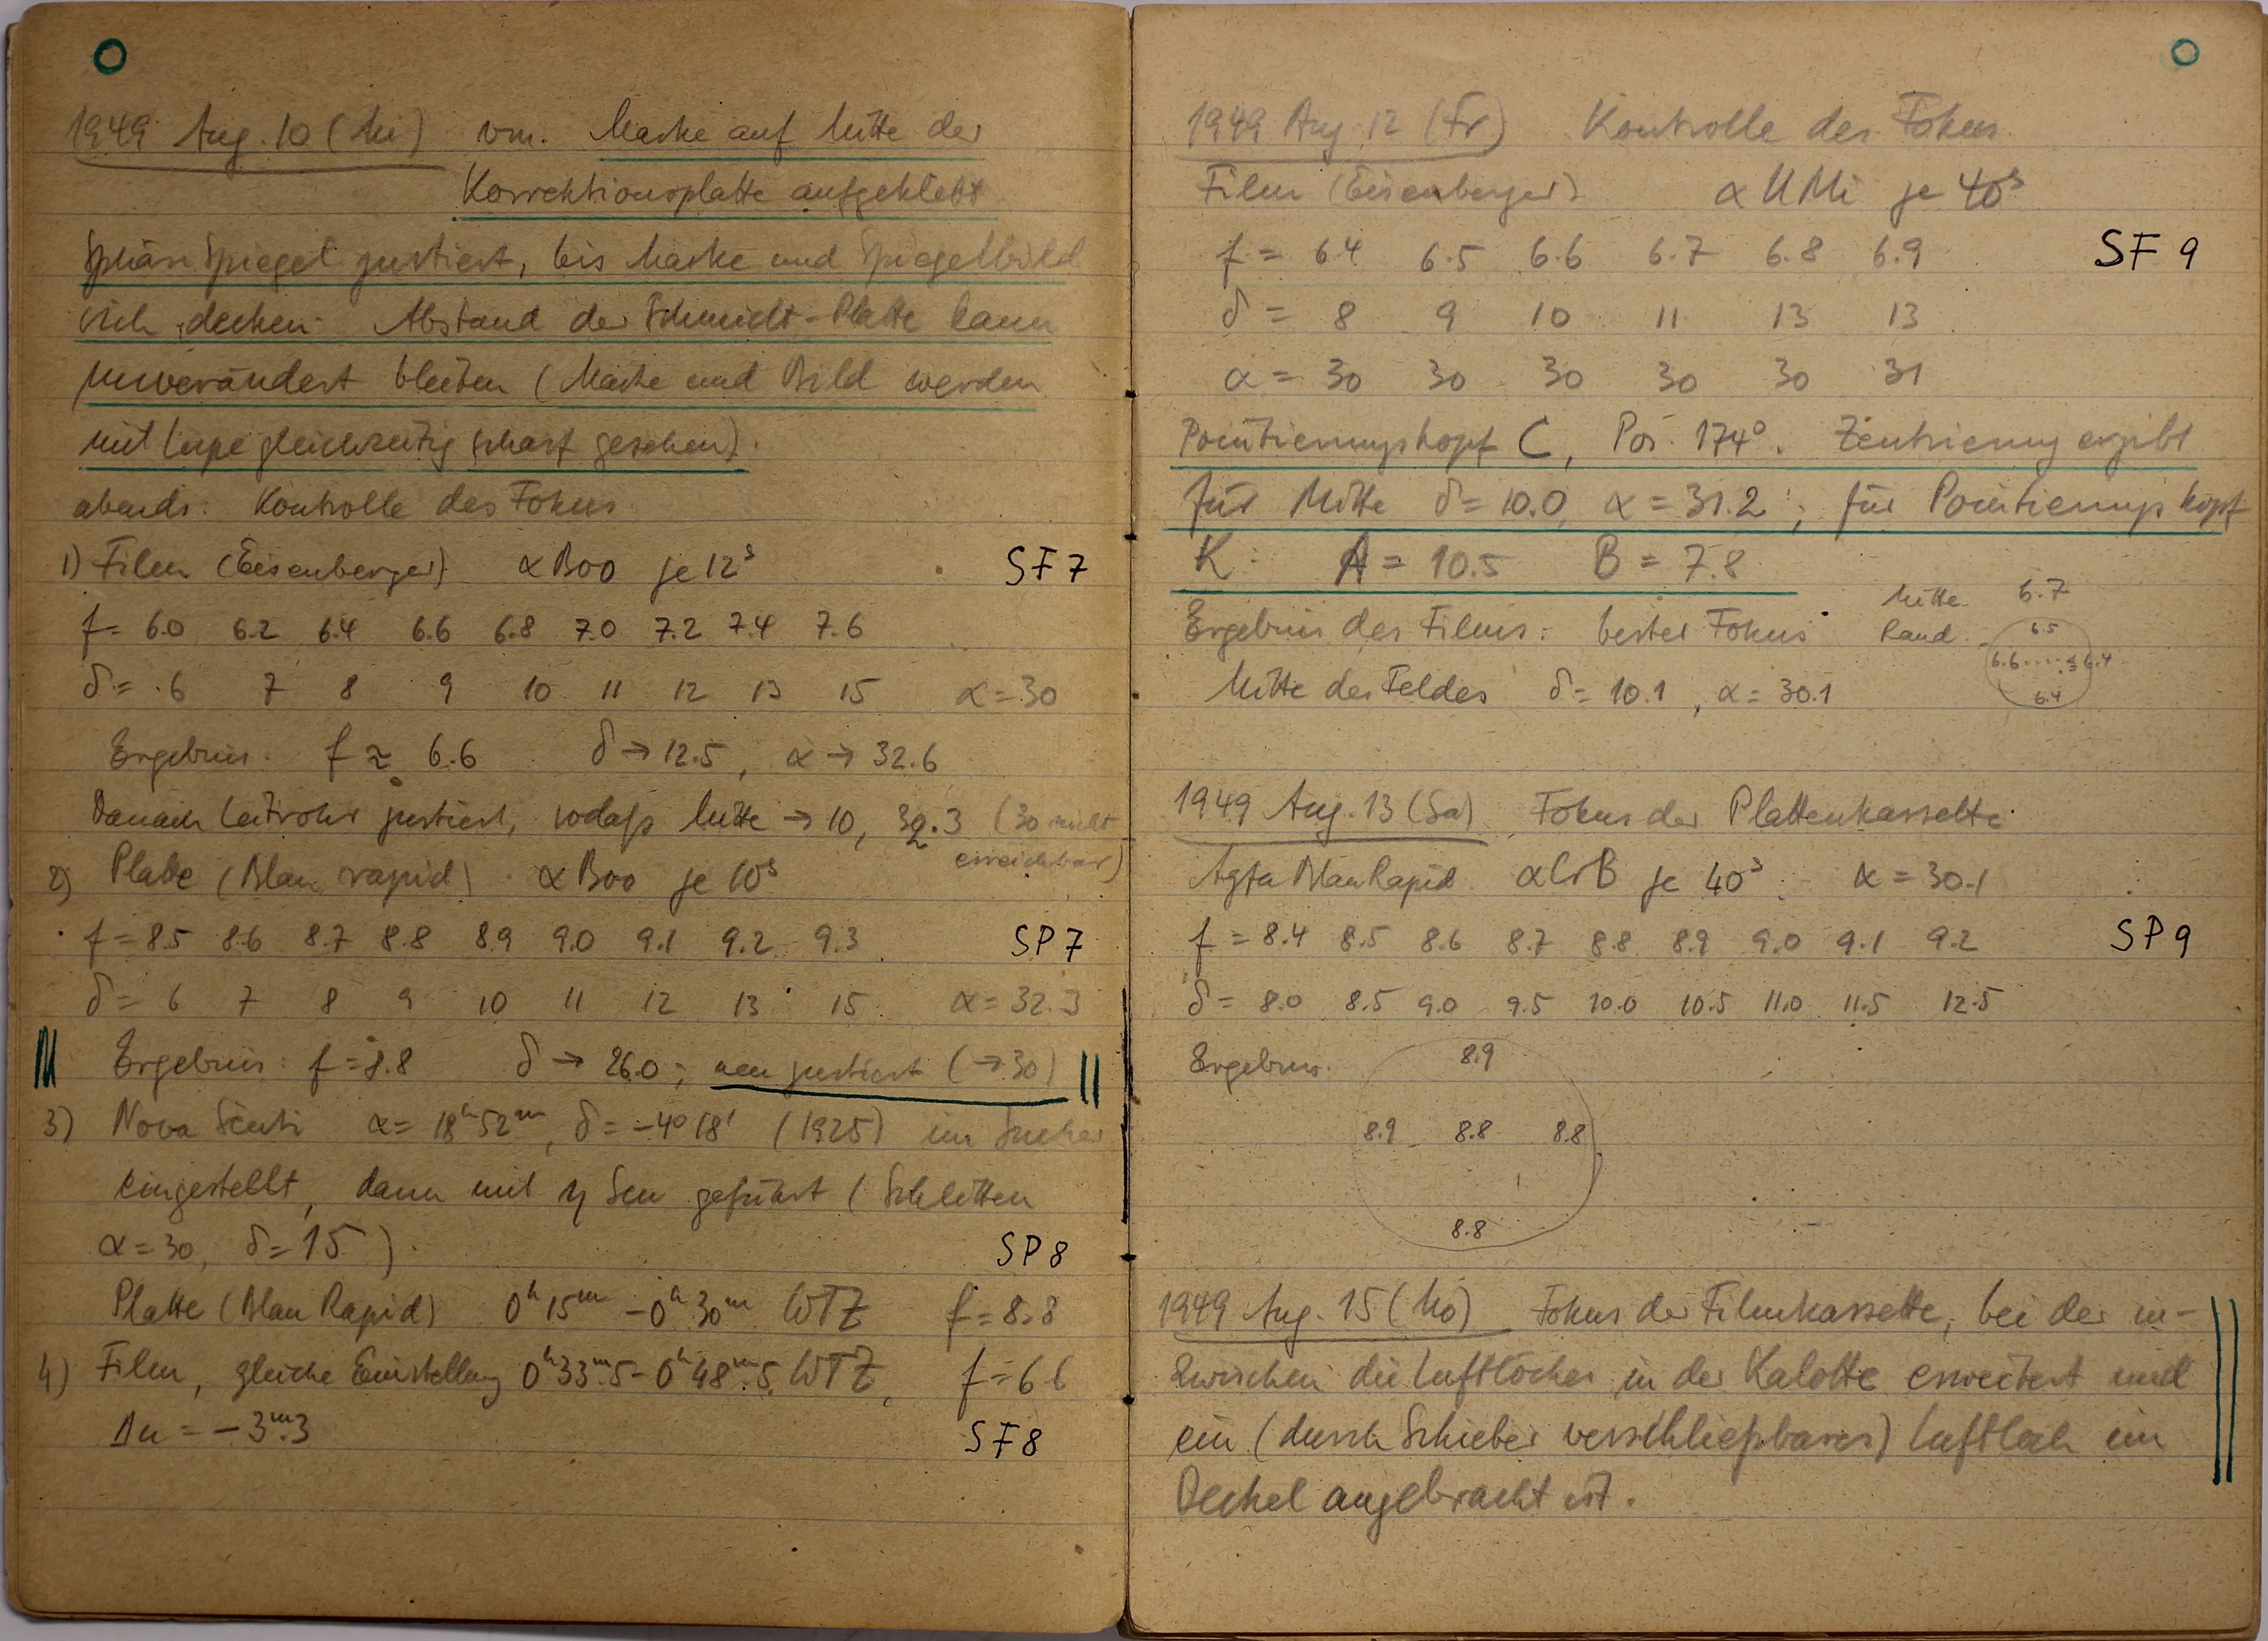 1949 Aug. 10 (Mi) vm. Marke auf Mitte der
Korrektionsplatte aufgeklebt
Sphär. Spiegel justiert, bis Marke und Spiegelbild
sich decken. Abstand der Schmidt-Platte kann
unverändert bleiben (Marke und Bild werden
mit Lupe gleichzeitig scharf gesehen).
abends: Kontrolle des Fokus
1) Film (Eisenberger) α Boo je 12ˢ SF7
f = 6.0 6.2 6.4 6.6 6.8 7.0 7.2 7.4 7.6
δ = 6 7 8 9 10 11 12 13 15 α = 30
Ergebnis: f ≈ 6.6 δ → 12.5, α → 32.6
Danach Leitrohr justiert, sodaß Mitte → 10, 32.3 (30 nicht
erreichbar)
2) Platte (Blau rapid) α Boo je 10ˢ
f = 8.5 8.6 8.7 8.8 8.9 9.0 9.1 9.2 9.3 SP7
δ = 6 7 8 9 10 11 12 13 15 α = 32.3
Ergebnis: f = 8.8 δ → 26.0; neu justiert (→ 30)
3) Nova Scuti α = 18ʰ52ᵐ, δ = −4°18' (1925) im Sucher
eingestellt, dann mit η Scu geführt (Schlitten
α = 30, δ = 15). SP8
Platte (Blau Rapid) 0ʰ15ᵐ − 0ʰ30ᵐ WTZ f = 8.8
4) Film, gleiche Einstellung 0ʰ33ᵐ.5 − 0ʰ48ᵐ.5 WTZ, f = 6.6
Δu = −3ᵐ.3 SF8
1949 Aug. 12 (Fr) Kontrolle des Fokus
Film (Eisenberger) α UMi je 40ˢ
f = 6.4 6.5 6.6 6.7 6.8 6.9 SF9
δ = 8 9 10 11 13 13
α = 30 30 30 30 30 31
Pointierungskopf C, Pos. 174°. Zentrierung ergibt
für Mitte δ = 10.0, α = 31.2; für Pointierungskopf
K: A = 10.5 B = 7.8
Ergebnis des Films: bester Fokus Mitte 6.7
Rand 6.5
6.6 ..... 6.4
6.4
Mitte des Feldes δ = 10.1, α = 30.1
1949 Aug. 13 (Sa) Fokus der Plattenkassette
Agfa Blau Rapid α CrB je 40ˢ α = 30.1
f = 8.4 8.5 8.6 8.7 8.8 8.9 9.0 9.1 9.2 SP9
δ = 8.0 8.5 9.0 9.5 10.0 10.5 11.0 11.5 12.5
Ergebnis: 8.9
8.9 8.8 8.8
8.8
1949 Aug. 15 (Mo) Fokus der Filmkassette, bei der in-
zwischen die Luftlöcher in der Kalotte erweitert und
ein (durch Schieber verschließbares) Luftloch im
Deckel angebracht ist.